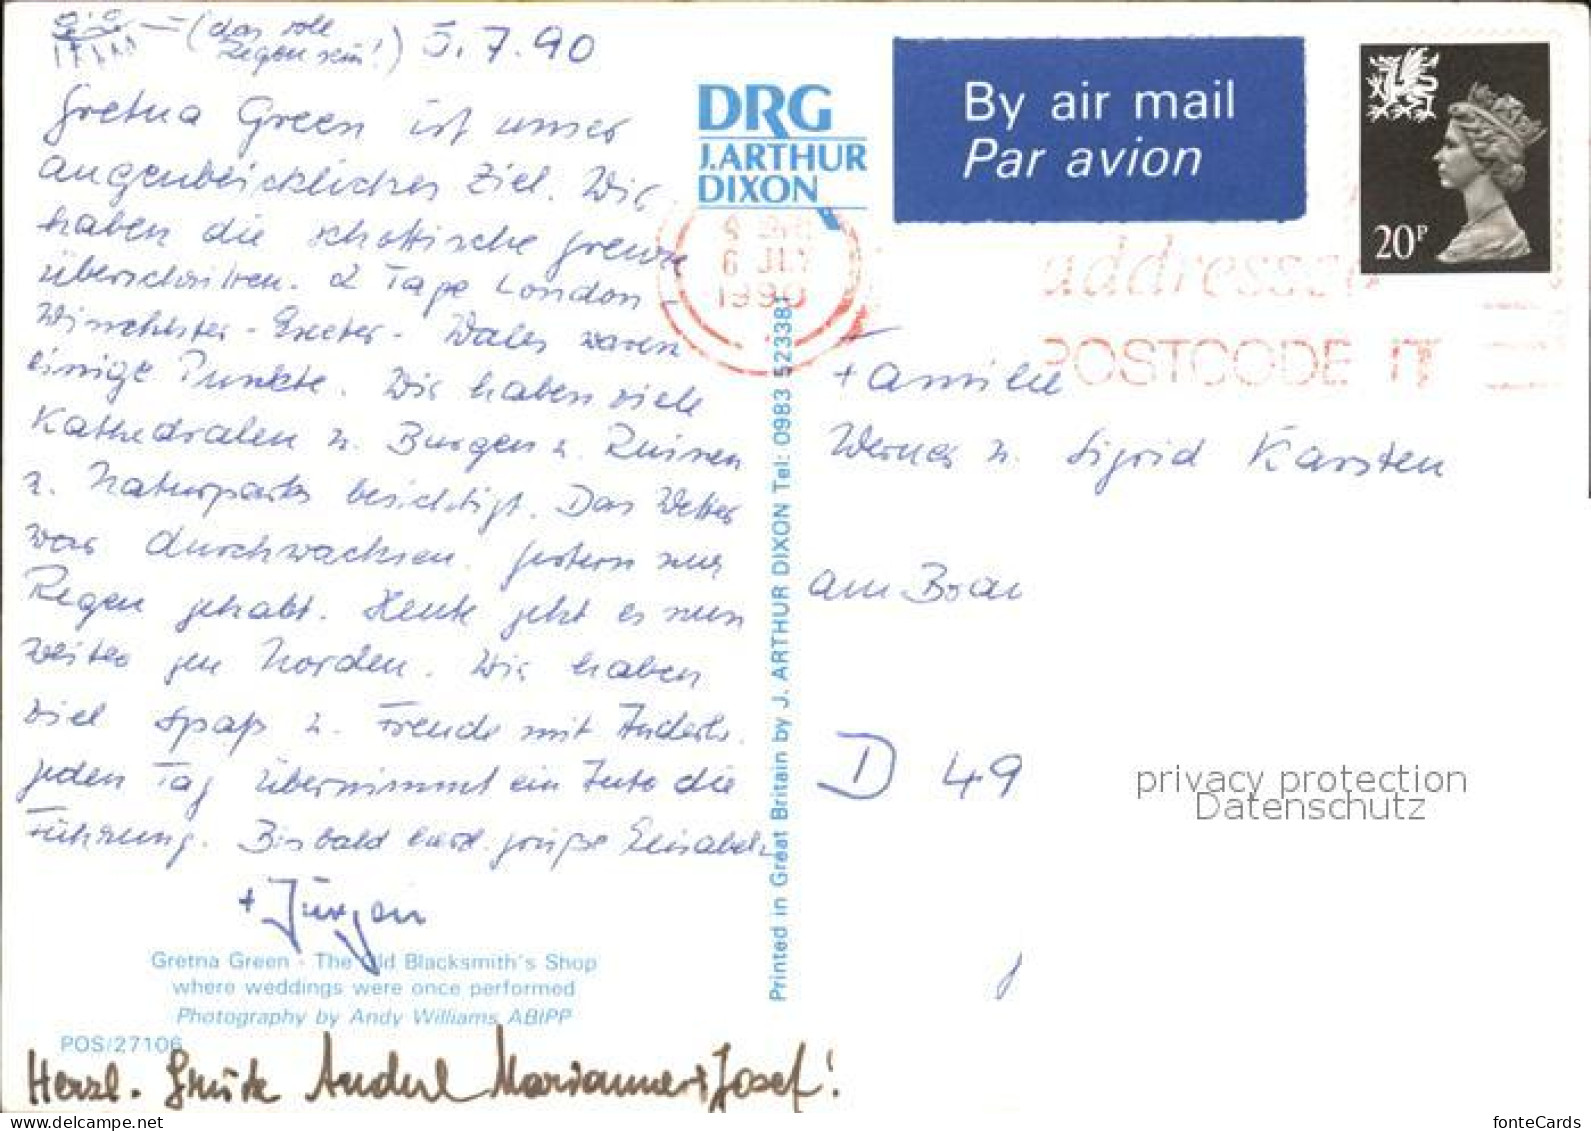 = (das soll
Regen sein!) 5.7.90
Gretna Green ist unser
augenblickliches Ziel. Wir
haben die schottische Grenze
überschritten. 2 Tage London -
Winchester - Exeter - Wales waren
einige Punkte. Wir haben viele
Kathedralen u. Burgen u. Ruinen
u. Naturparks besichtigt. Das Wetter
war durchwachsen. Gestern nur
Regen gehabt. Heute geht es nun
weiter gen Norden. Wir haben
viel Spaß u. Freude mit Anderls.
Jeden Tag übernimmt ein Auto die
Führung. Bis bald herzl. Grüße Elisabeth
+ Jürgen
Gretna Green - The Old Blacksmith's Shop
where weddings were once performed
Photography by Andy Williams ABIPP
POS/27106
Herzl. Grüße Anderl Marianne + Josef!
DRG
J.ARTHUR
DIXON
Printed in Great Britain by J. ARTHUR DIXON Tel: 0983 523381
By air mail
Par avion
20P
6 JLY
1990
addressed
POSTCODE IT
Familie
Werner u. Sigrid Karsten
Am
D 49
privacy protection
Datenschutz
fonteCards
www.delcampe.net